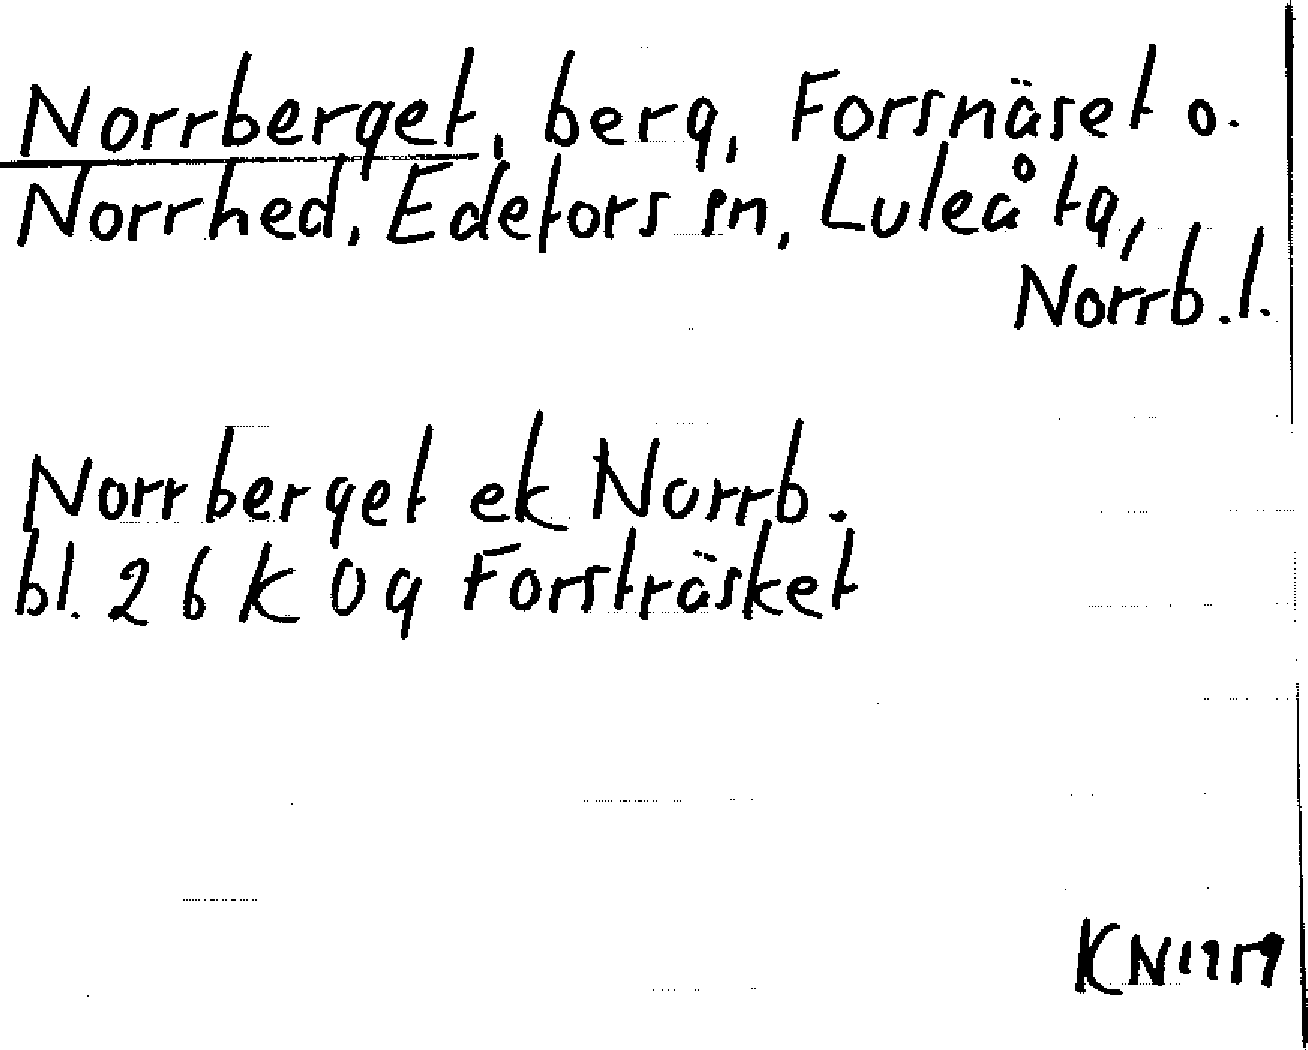 Norrberget, berg, Forsnäset o.
Norrhed, Edefors sn, Luleå tg,
Norrb.l.
Norrberget ek Norrb.
bl. 26 K 0g Forsträsket
KN